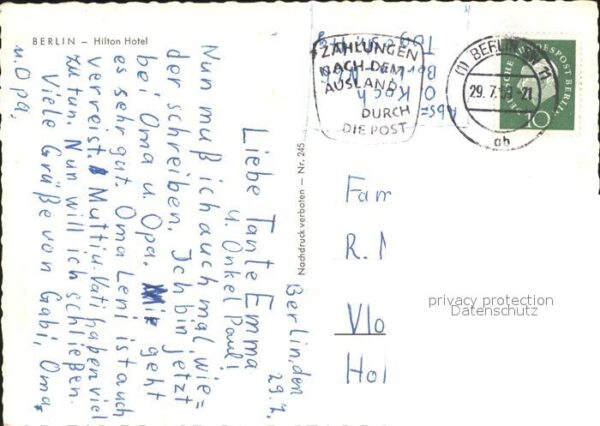 BERLIN – Hilton Hotel
Berlin, den
29.7.
Liebe Tante Emma
u. Onkel Paul!
Nun muß ich auch mal wie=
der schreiben. Ich bin jetzt
bei Oma u. Opa. Mir geht
es sehr gut. Oma Leni ist auch
verreist. Mutti u. Vati haben viel
zu tun. Nun will ich schließen.
Viele Grüße von Gabi, Oma,
u. Opa,
Nachdruck verboten – Nr. 245
Abs=
O. Koch
Berlin
ZAHLUNGEN
NACH DEM
AUSLAND
DURCH
DIE POST
(1) BERLIN
29.7.59-21
ab
DEUTSCHE BUNDESPOST BERLIN
10
Fam
R.
Vlo
Hol
privacy protection
Datenschutz